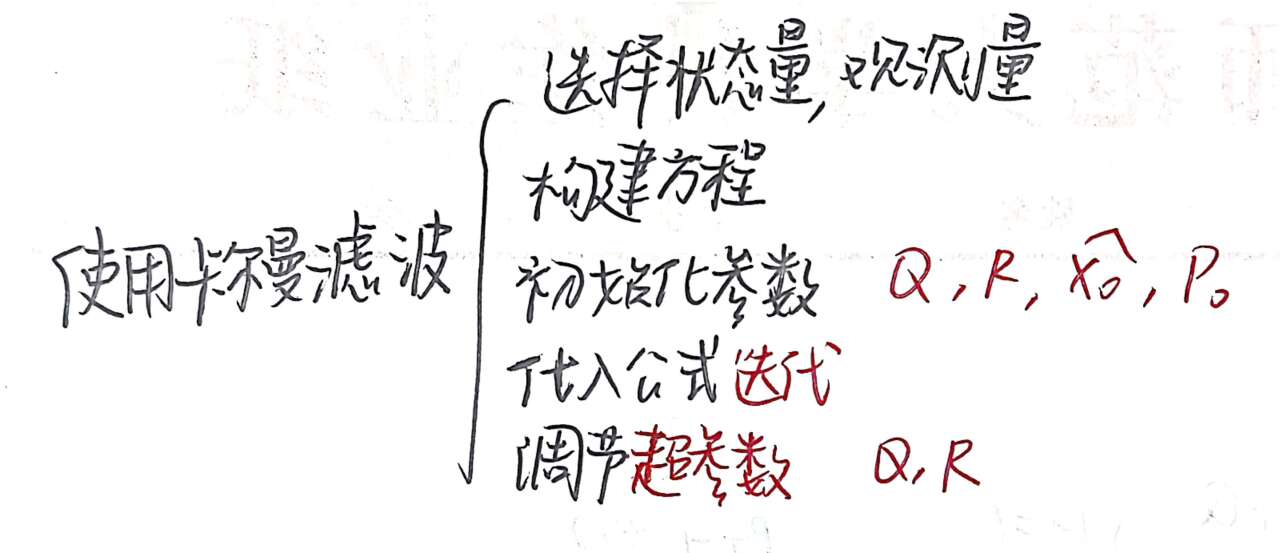 选择状态量,观测量
构建方程
使用卡尔曼滤波
初始化参数 Q, R, x̂₀, P₀
代入公式迭代
调节超参数 Q, R